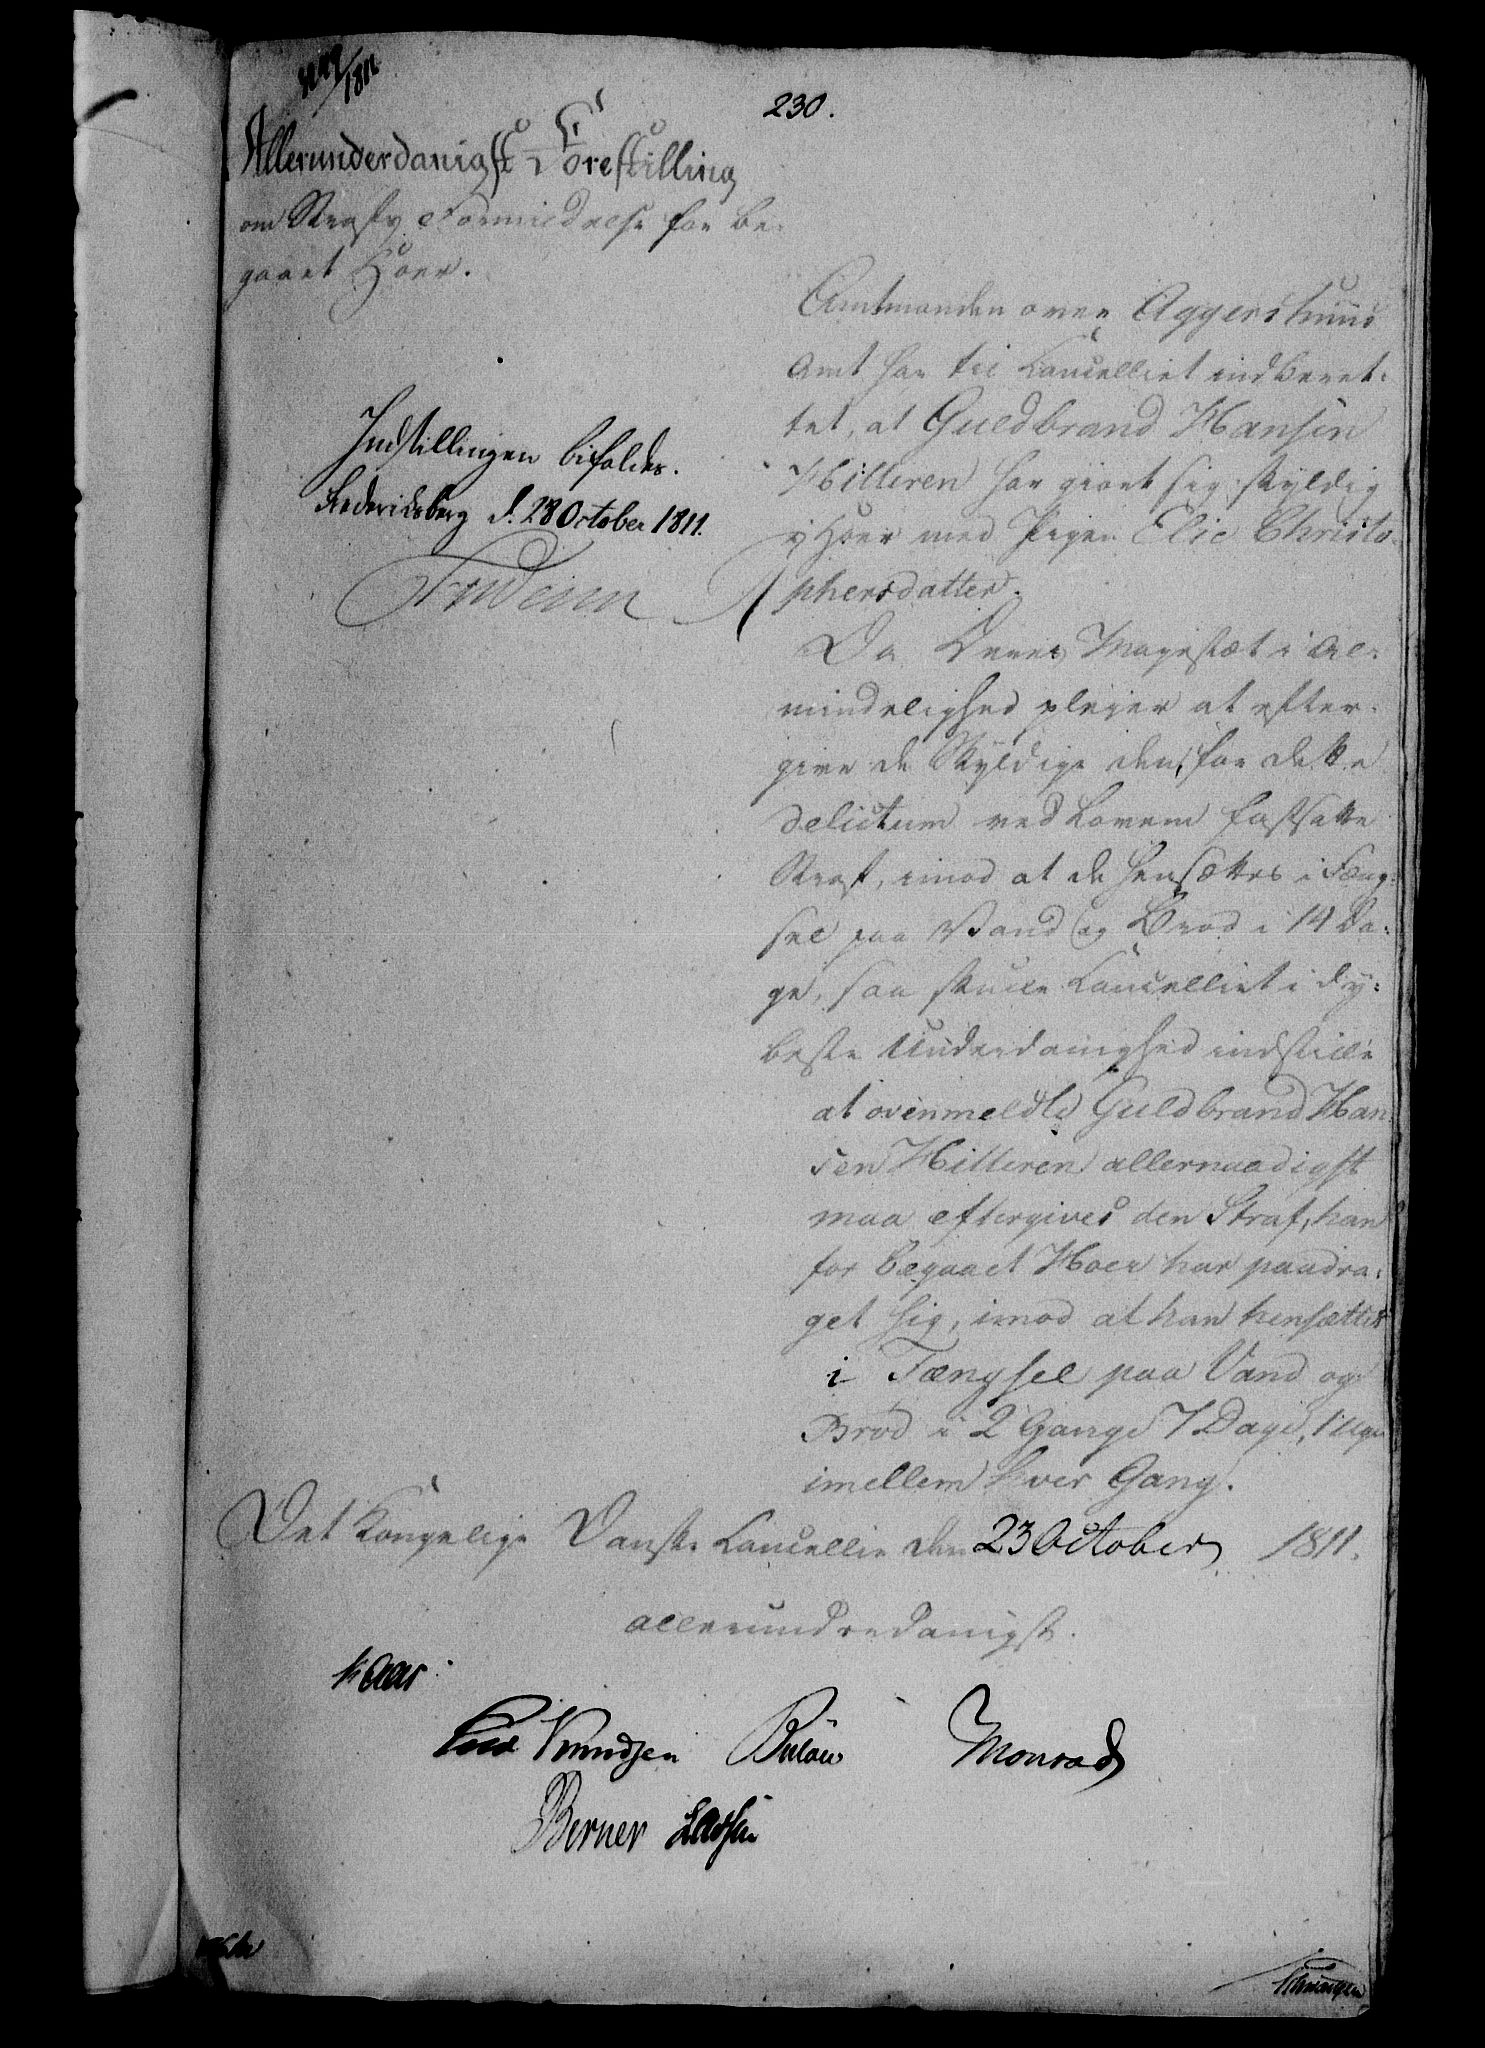 230.
Allerunderdanigst Forestilling
om Straffs Formildelse for be-
gaaet Hoer.
Amtmanden over Aggershuus
Amt har til Cancelliet indberet-
tet, at Guldbrand Hansen
Hilleren har giort sig skyldig
i Hoer med Pigen Elie Christo-
phersdatter.
Indstillingen bifaldes.
Frederichsberg d. 28 October 1811.
Frederik R
Da Deres Majestæt i Al-
mindelighed pleier at efter-
give de Skyldige den for dette
delictum ved Loven fastsatte
Straf, imod at de hensættes i Fæng-
sel paa Vand og Brød i 14 Da-
ge, saa skulle Cancelliet i dy-
beste Underdanighed indstille
at ovenmeldte Guldbrand Han-
sen Hilleren allernaadigst
maa eftergives den Straf, han
for begaaet Hoer har paadra-
get sig, imod at han hensættes
i Fængsel paa Vand og
Brød i 2 Gange 7 Dage, 1 Uge
imellem hver Gang.
Det Kongelige Danske Cancellie den 23 October 1811.
allerunderdanigst.
Kaas
Knudsen Bülow Monrad
Berner Lassen